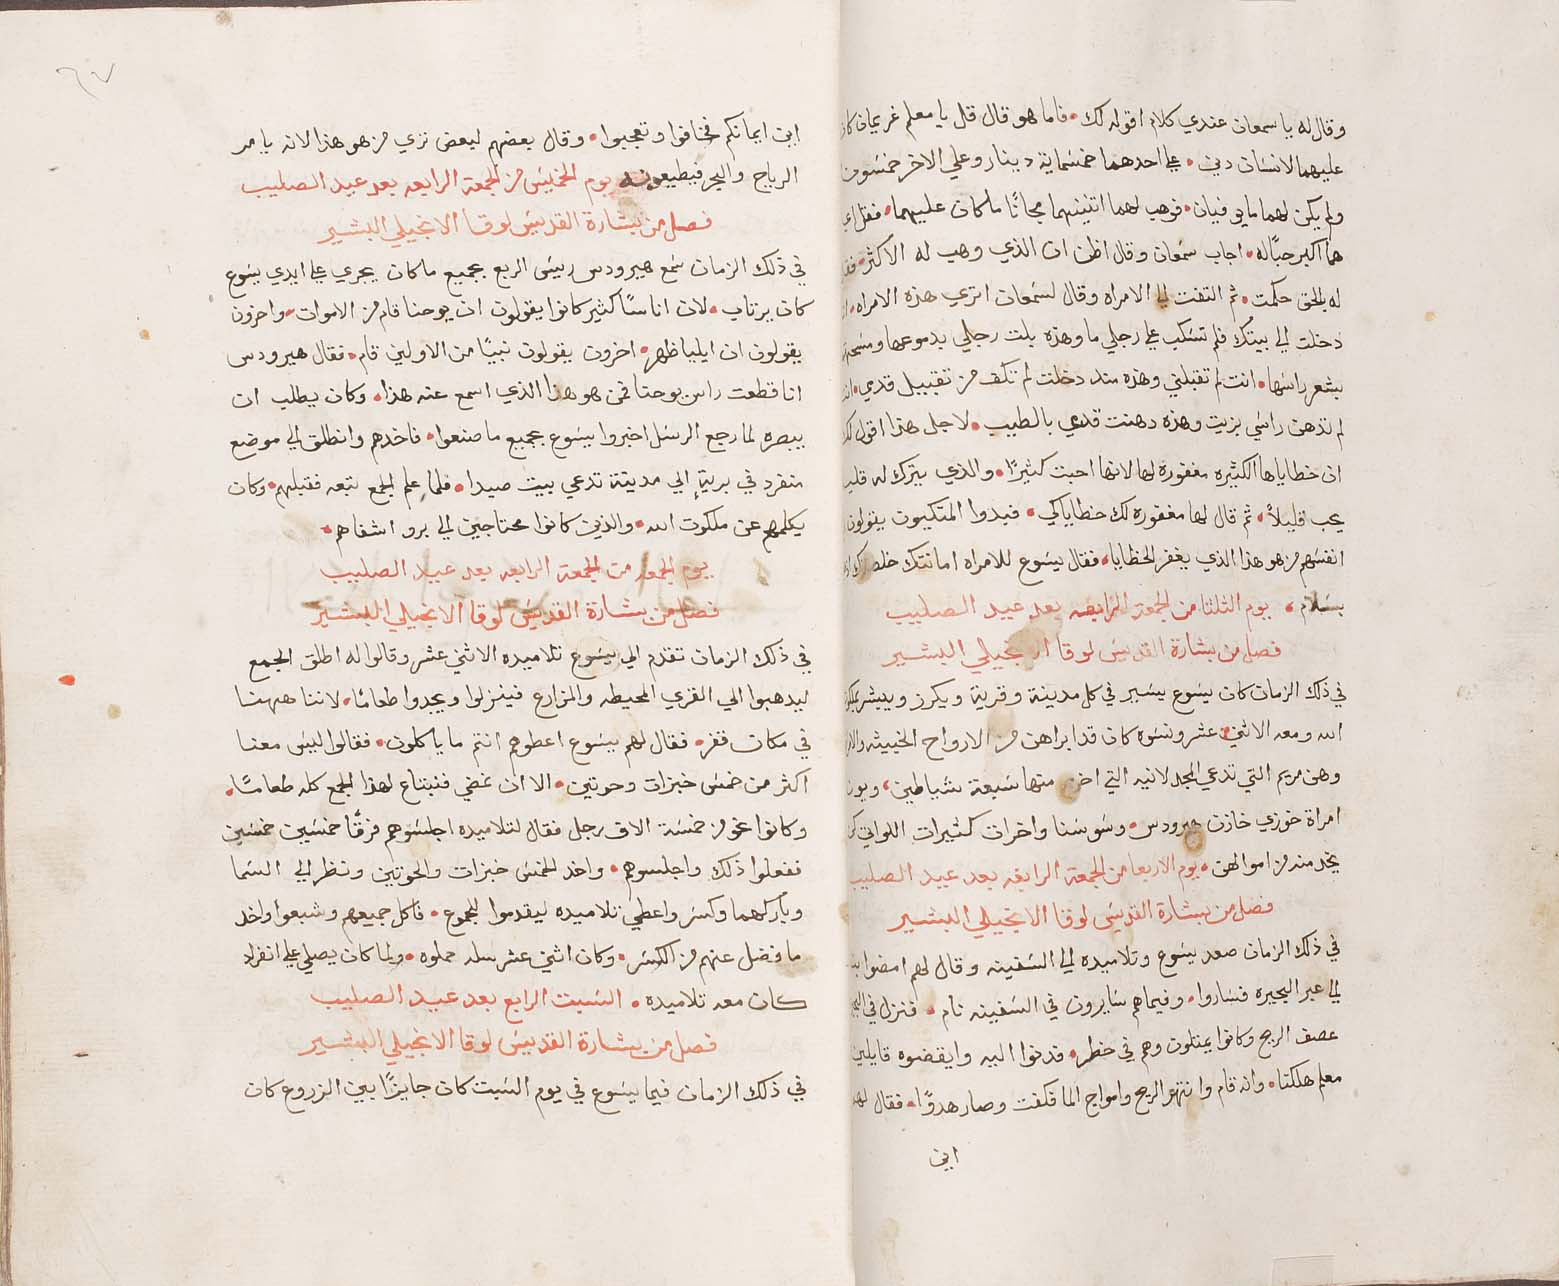 وقال له يا سمعان عندي كلام اقوله لك • فاما هو قال قل يا معلم غريمان كان
عليهما لانسان دين • علي احدهما خمسماية دينار وعلي الاخر خمسون
ولم يكن لهما ما يوفيان • فوهب لهما اتنينهما مجانًا ما كان عليهما • فقل
هما اكبر حبًا له • اجاب سمعان وقال اظن ان الذي وهب له الاكثر •
له بالحق حكمت • ثم التفت الي الامراه وقال لسمعان اتري هذه الامراه •
دخلت الي بيتك فلم تسكب علي رجلي ما وهذه بلت رجلي بدموعها ومسحتهم
بشعر راسها • انت لم تقبلني وهذه منذ دخلت لم تكف من تقبيل قدمي •
لم تدهن راسي بزيت وهذه دهنت قدمي بالطيب • لاجل هذا اقول لك
ان خطاياها الكثيره مغفورة لها لانها احبت كثيرًا • والذي يترك له قليل
يحب قليلاً • ثم قال لها مغفوره لك خطاياكي • فبدوا المتكيون يقولون
انفسهم من هو هذا الذي يغفر الخطايا • فقال يسوع للامراه امانتك خلصتك
بسلام • يوم الثلثا من الجمعة الرابعه بعد عيد الصليب
فصل من بشارة القديس لوقا الانجيلي البشير
في ذلك الزمان كان يسوع يسير في كل مدينة وقرية ويكرز ويبشر بملكوت
الله ومعه الاثني عشر ونسوه كان قد ابراهن من الارواح الخبيثه
وهن مريم التي تدعي المجدلانيه التي اخرج منها سبعة شياطين •
امراة خوزي خازن هيرودس • وسوسنا واخرات كثيرات اللواتي كن
يخدمنه من اموالهن • يوم الاربعا من الجمعة الرابعه بعد عيد الصليب
فصل من بشارة القديس لوقا الانجيلي البشير
في ذلك الزمان صعد يسوع وتلاميذه الي السفينه وقال لهم امضوا بنا
الي عبر البحيره فساروا • وفيما هم سايرون في السفينه نام • فنزل في
عصف الريح وكانوا يمتلون وهم في خطر • فدنوا اليه وايقضوه قايلين
معلم هلكنا • وانه قام وانتهر الريح وامواج الما فكفت وصار هدوًا • فقال لهم
اين
٦٧
اين ايمانكم فخافوا وتعجبوا • وقال بعضهم لبعض تري من هو هذا لانه يامر
الرياح والبحر فيطيعونه يوم الخميس من الجمعة الرابعه بعد عيد الصليب
فصل من بشارة القديس لوقا الانجيلي البشير
في ذلك الزمان سمع هيرودس رييس الربع بجميع ما كان يجري علي ايدي يسوع
كان يرتاب • لان اناسًا كثير كانوا يقولون ان يوحنا قام من الاموات • واخرون
يقولون ان ايليا ظهر • اخرون يقولون نبيًا من الاولين قام • فقال هيرودس
انا قطعت راس يوحنا فمن هو هذا الذي اسمع عنه هذا • وكان يطلب ان
يبصره لما رجع الرسل اخبروا يسوع بجميع ما صنعوا • فاخدهم وانطلق الي موضع
منفرد في برية الي مدينة تدعي بيت صيدا • فلما علم الجمع تبعه فقبلهم • وكان
يكلمهم عن ملكوت الله • والذين كانوا محتاجين الي برو اشفاهم •
يوم الجمعه من الجمعة الرابعه بعد عيد الصليب
فصل من بشارة القديس لوقا الانجيلي البشير
في ذلك الزمان تقدم الي يسوع تلاميده الاثني عشر وقالوا له اطلق الجمع
ليدهبوا الي القري المحيطه والمزارع فينزلوا ويجدوا طعامًا • لاننا ههنا
في مكان قفر • فقال لهم يسوع اعطوهم انتم ما ياكلون • فقالوا ليس معنا
اكثر من خمس خبزات وحوتين • الا ان نمضي فنبتاع لهذا الجمع كله طعامًا •
وكانوا نحو من خمسة الاف رجل فقال لتلاميده اجلسوهم فرقًا خمسين خمسين
ففعلوا ذلك واجلسوهم • واخد الخمس خبزات والحوتين ونظر الي السما
وباركهما وكسر واعطي تلاميده ليقدموا للجموع • فاكل جميعهم وشبعوا واخد
ما فضل عنهم من الكسر • وكان اثني عشر سله مملوه • ولما كان يصلي علي انفراد
كان معه تلاميده • السبت الرابع بعد عيد الصليب
فصل من بشارة القديس لوقا الانجيلي البشير
في ذلك الزمان فيما يسوع في يوم السبت كان جايزًا بين الزروع كان